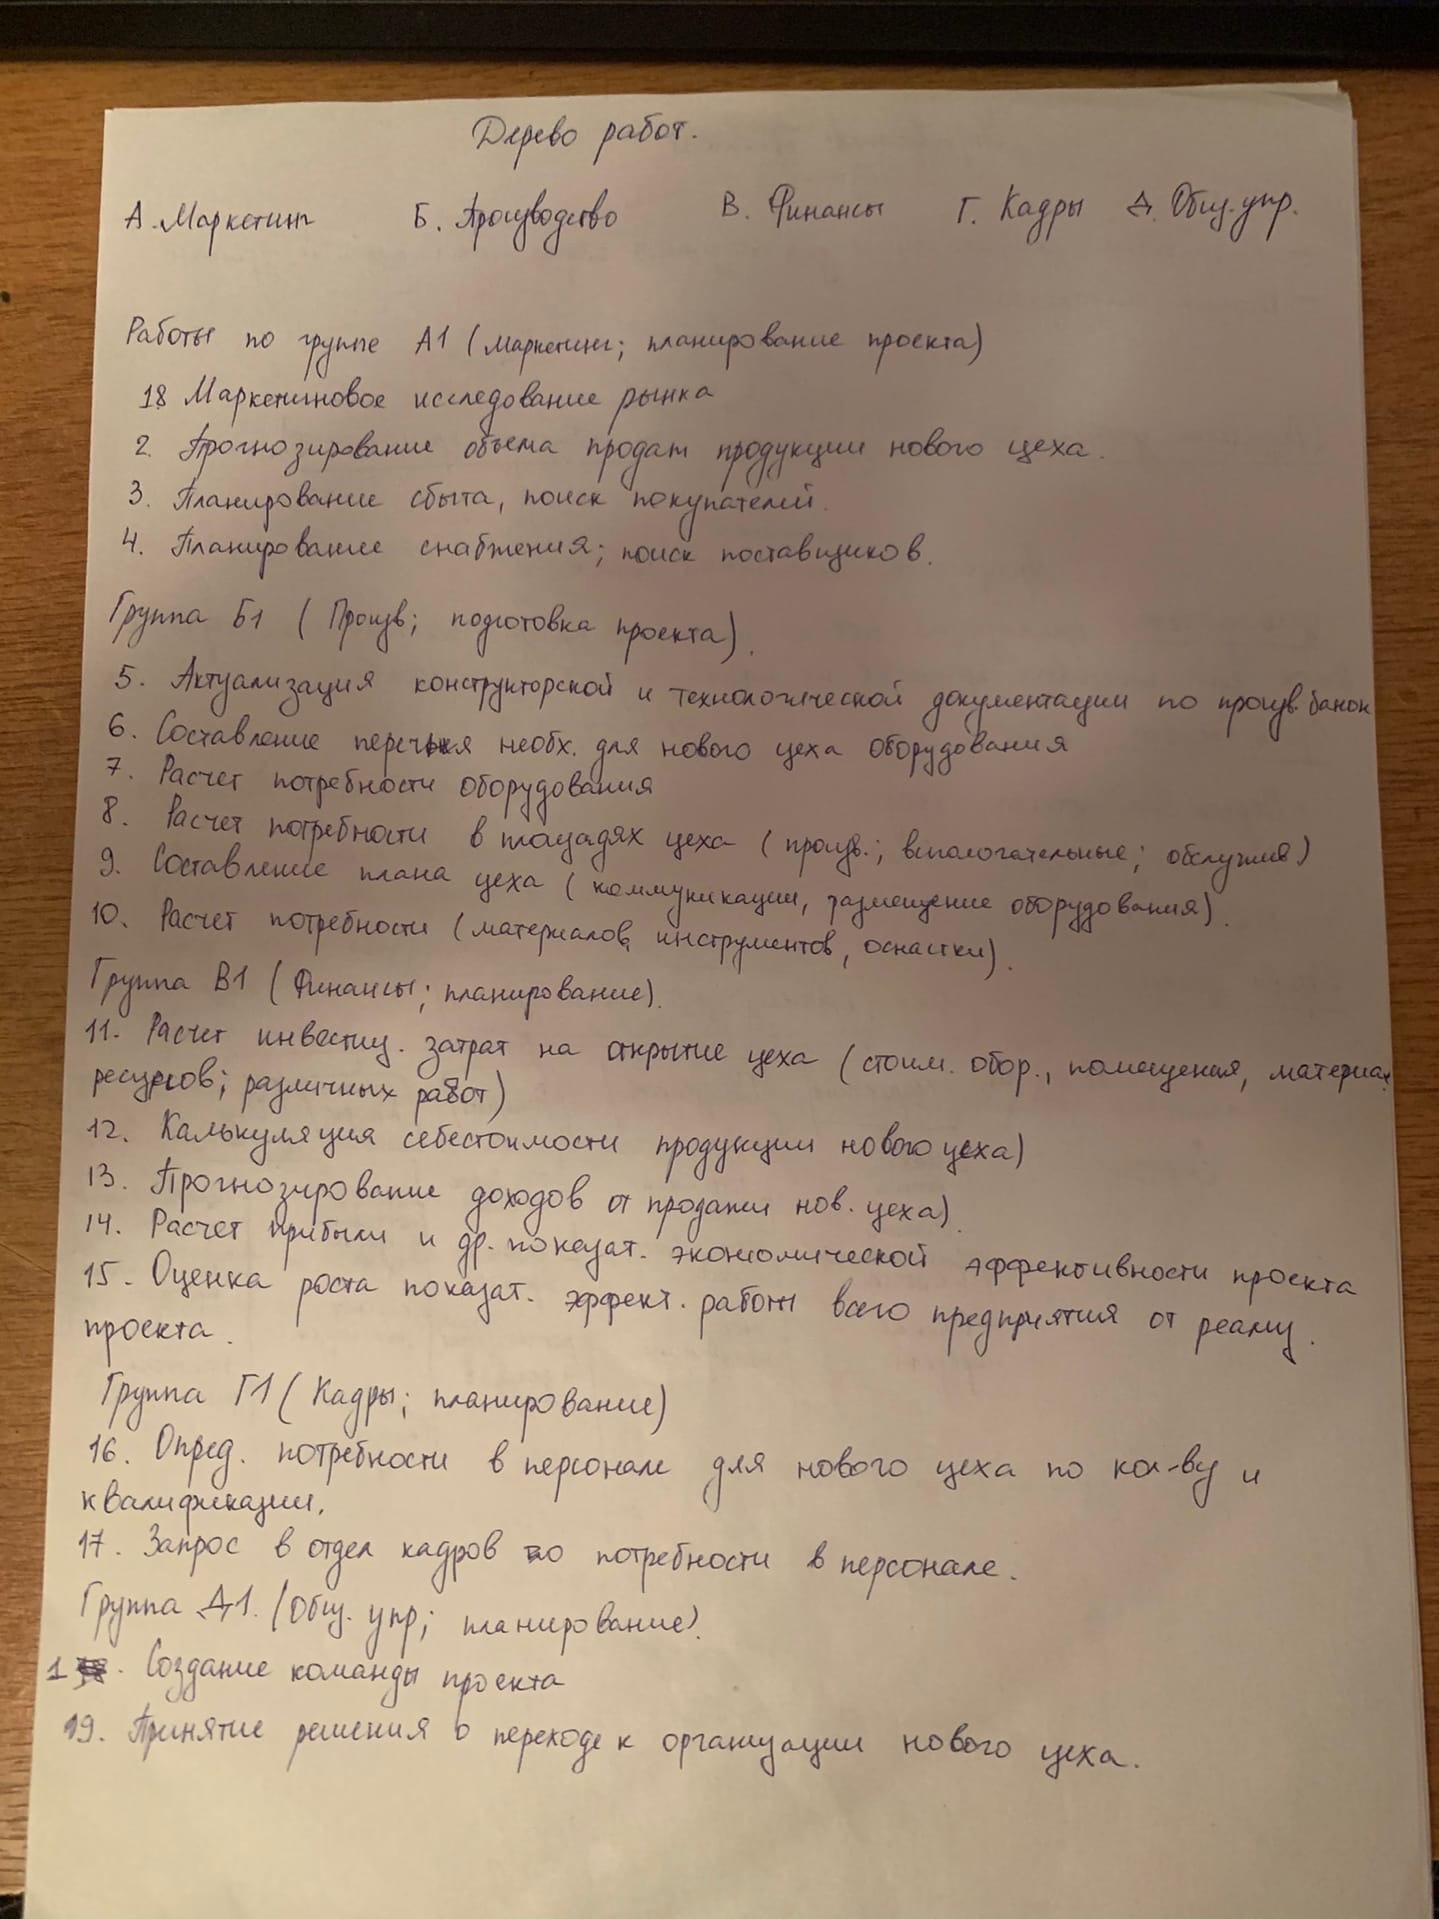 Дерево работ.
А. Маркетинг Б. Производство В. Финансы Г. Кадры Д. Общ. упр.
Работы по группе А1 (маркетинг; планирование проекта)
18 Маркетинговое исследование рынка
2. Прогнозирование объема продаж продукции нового цеха.
3. Планирование сбыта, поиск покупателей.
4. Планирование снабжения; поиск поставщиков.
Группа Б1 (Произв; подготовка проекта).
5. Актуализация конструкторской и технологической документации по произв. банок
6. Составление перечня необх. для нового цеха оборудования
7. Расчет потребности оборудования
8. Расчет потребности в площадях цеха (произв.; вспомогательные; обслужив)
9. Составление плана цеха (коммуникации, размещение оборудования).
10. Расчет потребности (материалов, инструментов, оснастки).
Группа В1 (Финансы; планирование).
11. Расчет инвестиц. затрат на открытие цеха (стоим. обор., помещения, материал.
ресурсов; различных работ)
12. Калькуляция себестоимости продукции нового цеха)
13. Прогнозирование доходов от продажи нов. цеха).
14. Расчет прибыли и др. показат. экономической эффективности проекта
15. Оценка роста показат. эффект. работы всего предприятия от реализ.
проекта.
Группа Г1 (Кадры; планирование)
16. Опред. потребности в персонале для нового цеха по кол-ву и
квалификации.
17. Запрос в отдел кадров о потребности в персонале.
Группа Д1. (Общ. упр; планирование).
1. Создание команды проекта
19. Принятие решения о переходе к организации нового цеха.